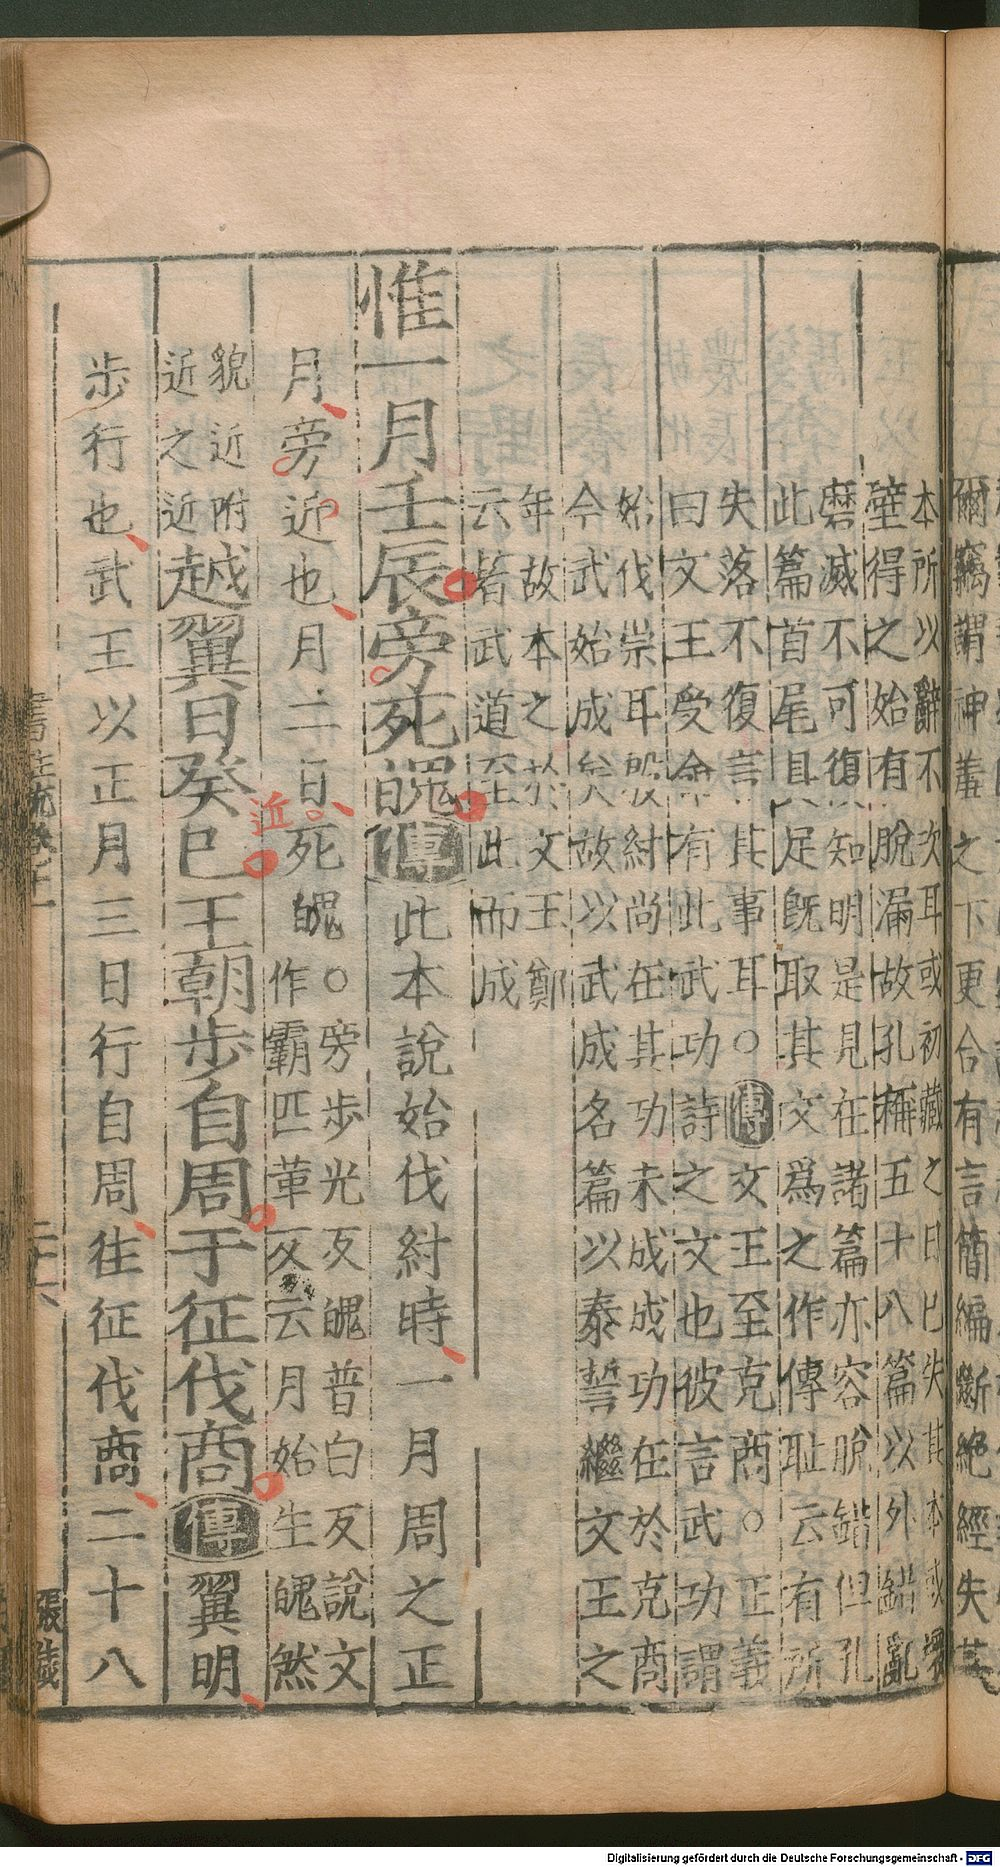 爾竊謂神羞之下更合有言簡編斷絕經失其
本所以辭不次耳或初藏之日已失其本或壞
壁得之始有脫漏故孔稱五十八篇以外錯亂
磨滅不可復知明是見在諸篇亦容脫錯但孔
此篇首尾具足既取其文爲之作傳耻云有所
失落不復言其事耳○傳文王至克商○正義
曰文王受命有此武功詩之文也彼言武功謂
始伐崇耳殷紂尚在其功未成成功在於克商
今武始成矣故以武成名篇以泰誓繼文王之
年故本之於文王鄭
云著武道至此而成
惟一月壬辰旁死魄傳此本說始伐紂時一月周之正
月旁近也月二日近死魄○旁步光反魄普白反說文
作霸匹革反云月始生魄然
貌近附
近之近越翼日癸巳王朝步自周于征伐商傳翼明
步行也武王以正月三日行自周往征伐商二十八
書注疏卷十一
二十六
張鉞
Digitalisierung gefördert durch die Deutsche Forschungsgemeinschaft - DFG